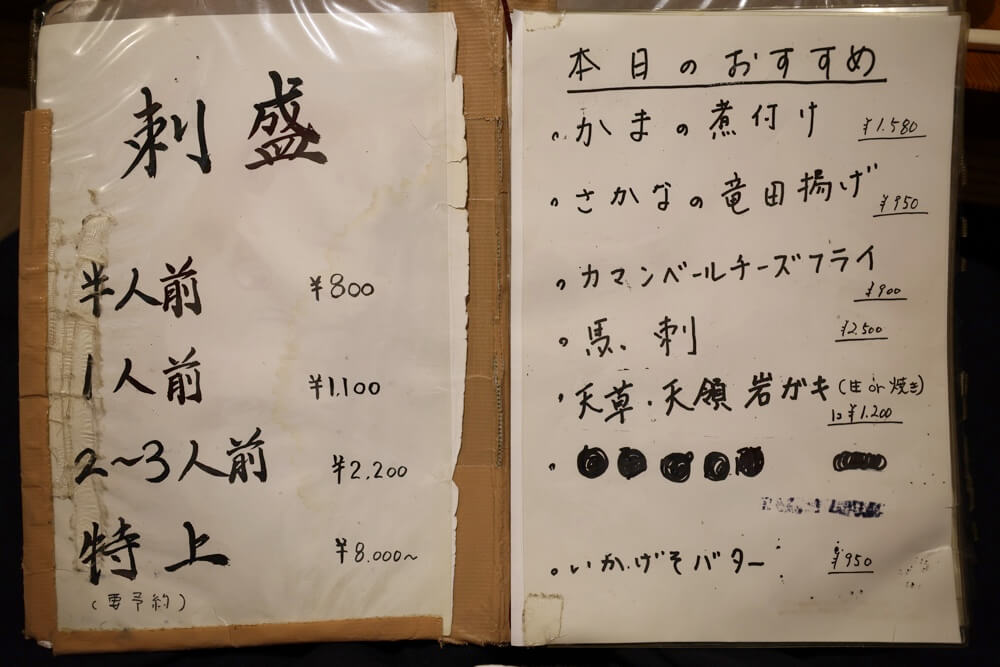 刺盛
半人前 ¥800
1人前 ¥1,100
2~3人前 ¥2,200
特上 ¥8,000~
(要予約)
本日のおすすめ
かまの煮付け ¥1,580
さかなの竜田揚げ ¥950
カマンベールチーズフライ ¥900
馬刺 ¥2,500
天草・天領岩ガキ(生or焼き)
1コ¥1,200
いかげそバター ¥950